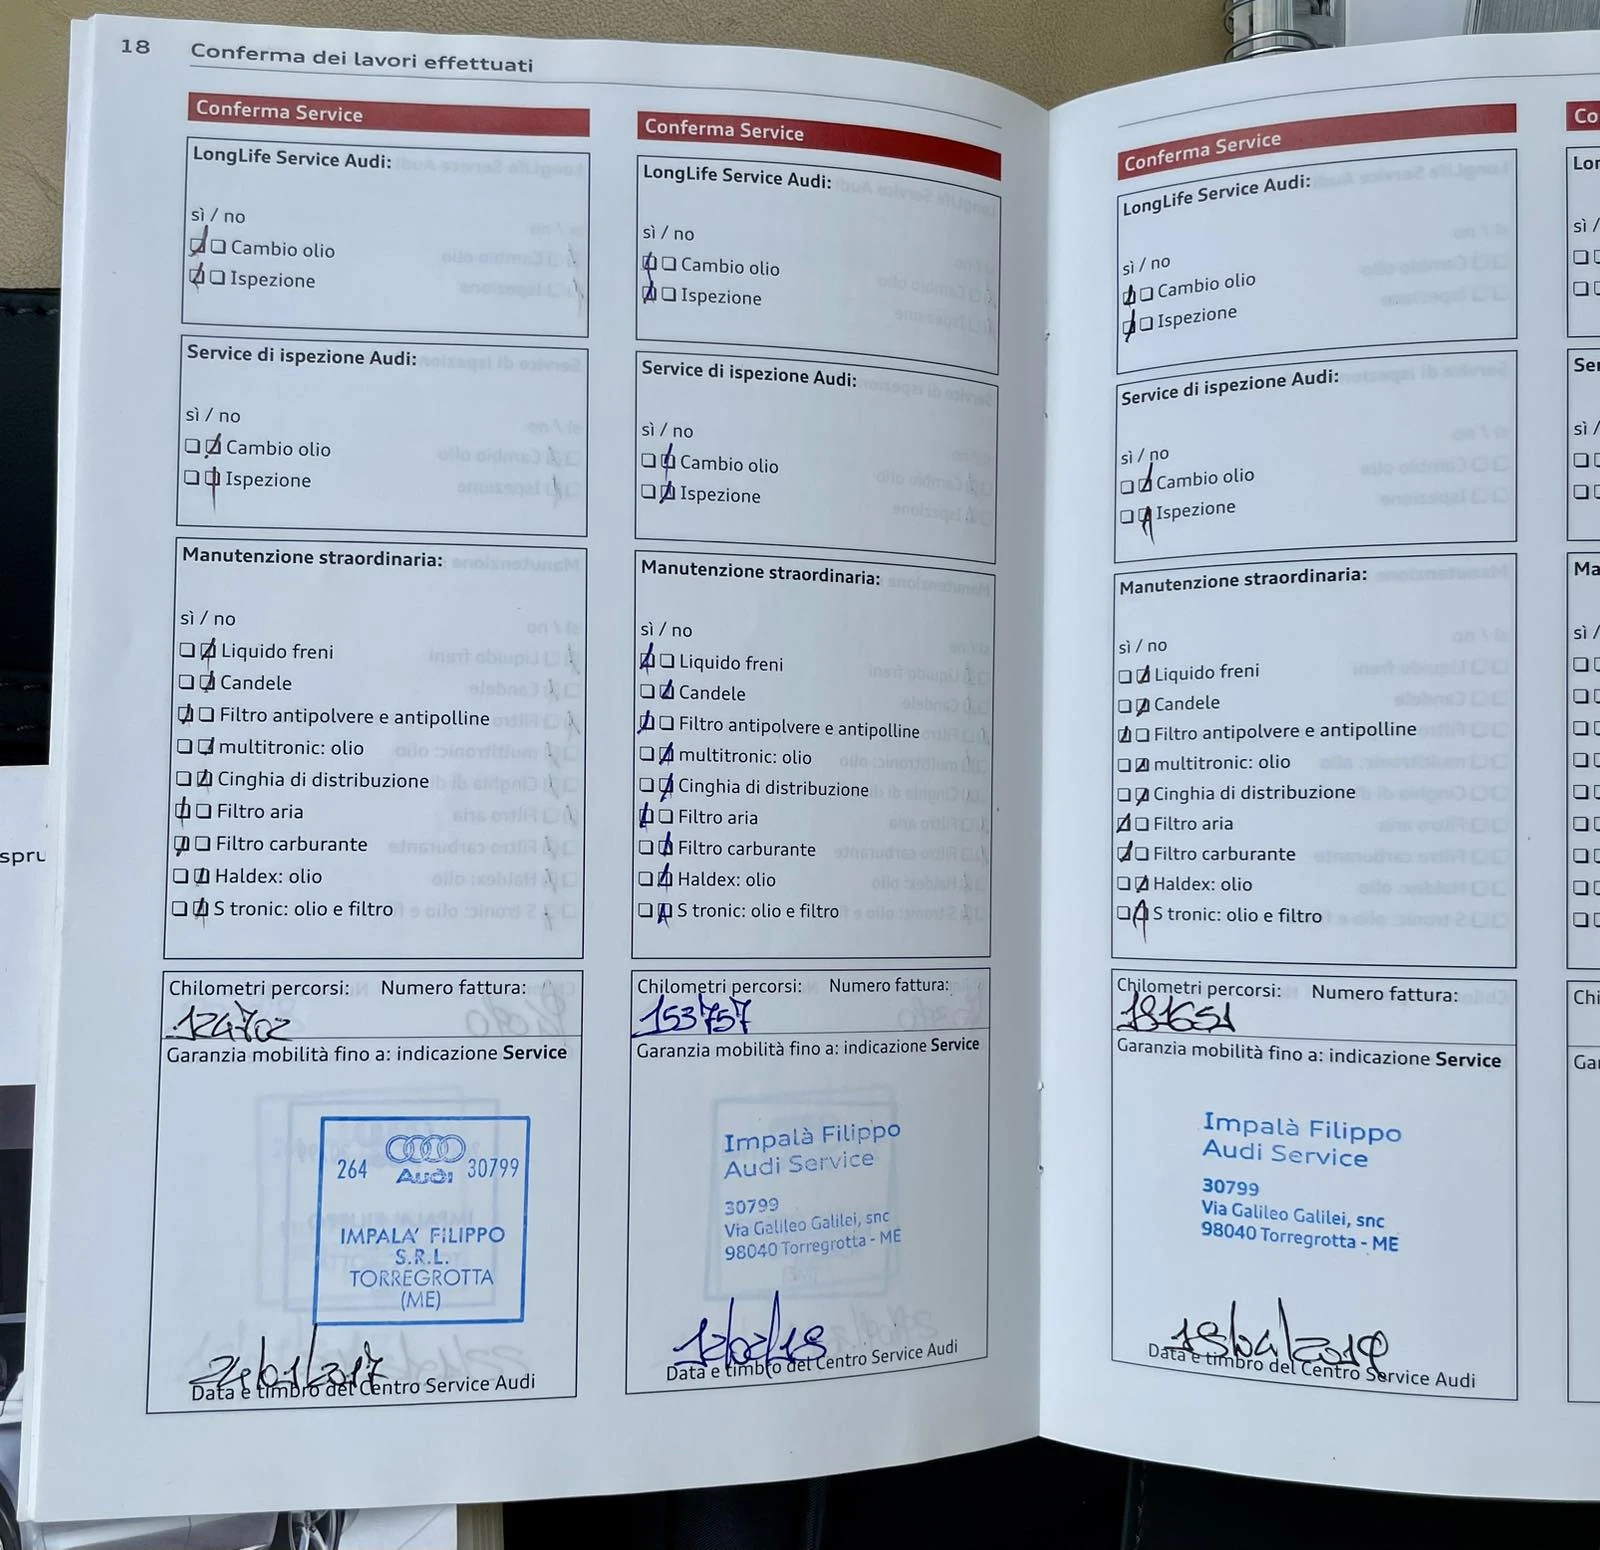 18 Conferma dei lavori effettuati
Conferma Service
LongLife Service Audi:
sì / no
Cambio olio
Ispezione
Service di ispezione Audi:
sì / no
Cambio olio
Ispezione
Manutenzione straordinaria:
sì / no
Liquido freni
Candele
Filtro antipolvere e antipolline
multitronic: olio
Cinghia di distribuzione
Filtro aria
Filtro carburante
Haldex: olio
S tronic: olio e filtro
Chilometri percorsi: Numero fattura:
124702
Garanzia mobilità fino a: indicazione Service
264 Audi 30799
IMPALA' FILIPPO
S.R.L.
TORREGROTTA
(ME)
24/01/2017
Data e timbro del Centro Service Audi
Conferma Service
LongLife Service Audi:
sì / no
Cambio olio
Ispezione
Service di ispezione Audi:
sì / no
Cambio olio
Ispezione
Manutenzione straordinaria:
sì / no
Liquido freni
Candele
Filtro antipolvere e antipolline
multitronic: olio
Cinghia di distribuzione
Filtro aria
Filtro carburante
Haldex: olio
S tronic: olio e filtro
Chilometri percorsi: Numero fattura:
153757
Garanzia mobilità fino a: indicazione Service
Impalà Filippo
Audi Service
30799
Via Galileo Galilei, snc
98040 Torregrotta - ME
12/02/18
Data e timbro del Centro Service Audi
Conferma Service
LongLife Service Audi:
sì / no
Cambio olio
Ispezione
Service di ispezione Audi:
sì / no
Cambio olio
Ispezione
Manutenzione straordinaria:
sì / no
Liquido freni
Candele
Filtro antipolvere e antipolline
multitronic: olio
Cinghia di distribuzione
Filtro aria
Filtro carburante
Haldex: olio
S tronic: olio e filtro
Chilometri percorsi: Numero fattura:
181651
Garanzia mobilità fino a: indicazione Service
Impalà Filippo
Audi Service
30799
Via Galileo Galilei, snc
98040 Torregrotta - ME
18/04/2019
Data e timbro del Centro Service Audi